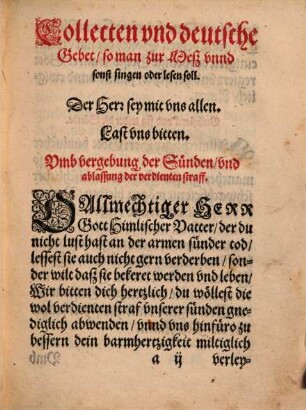 Collecten vnd deutsche
Gebet / so man zur Meß vnnd
sonst singen oder lesen soll.
Der Herr sey mit vns allen.
Last vns bitten.
Vmb vergebung der Sünden / vnd
ablassung der verdienten straff.
O Allmechtiger HERR
Gott Himlischer Vatter / der du
nicht lust hast an der armen sünder tod /
lessest sie auch nicht gern verderben / son-
der wilt daß sie bekeret werden vnd leben /
Wir bitten dich hertzlich / du wöllest die
wol verdienten straf vnserer sünden gne-
diglich abwenden / vnnd vns hinfüro zu
bessern dein barmhertzigkeit miltiglich
a ij verley-